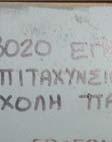 3020 ΕΠΙ
ΠΙΤΑΧΥΝΣΙΟ
ΧΟΛΗ ΠΑ